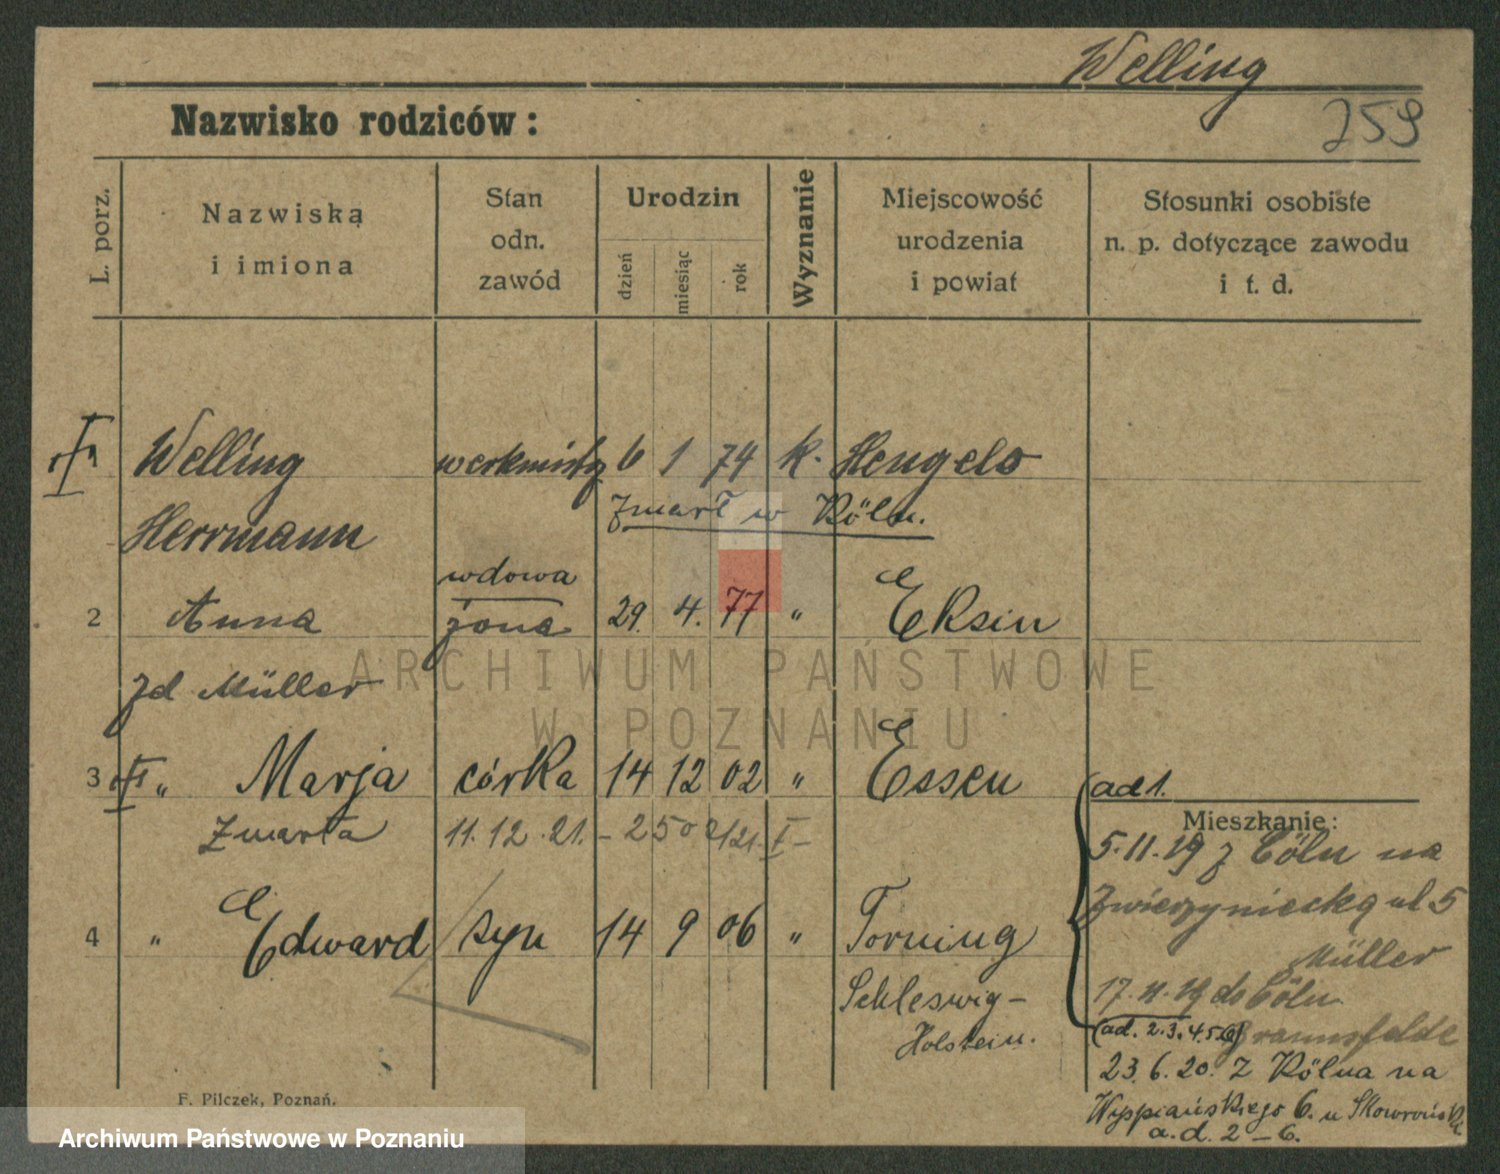 Welling
Nazwisko rodziców:
259
L. porz.
Nazwiska
i imiona
Stan
odn.
zawód
Urodzin
dzień
miesiąc
rok
Wyznanie
Miejscowość
urodzenia
i powiat
Stosunki osobiste
n. p. dotyczące zawodu
i t. d.
Welling werkmistrz 6 1 74 k. Hengelo
Herrmann Zmarł w Köln.
wdowa
2 Anna żona 29. 4. 77 " Eksin
zd Müller
3 " Marja córka 14 12 02 " Essen
ad 1.
Zmarła 11.12.21.
Mieszkanie:
5.11.19 z Cöln na
Zwierzyniecką ul 5
Müller
4 " Edward syn 14 9 06 " Torning
Schleswig-
Holstein.
17.11.19 do Cöln
Braunsfelde
(ad. 2.3.4.5.6)
23.6.20. z Kölna na
Wyspiańskiego 6. u Skowrońsk
a.d. 2-6.
F. Pilczek, Poznań.
ARCHIWUM PAŃSTWOWE
W POZNANIU
Archiwum Państwowe w Poznaniu